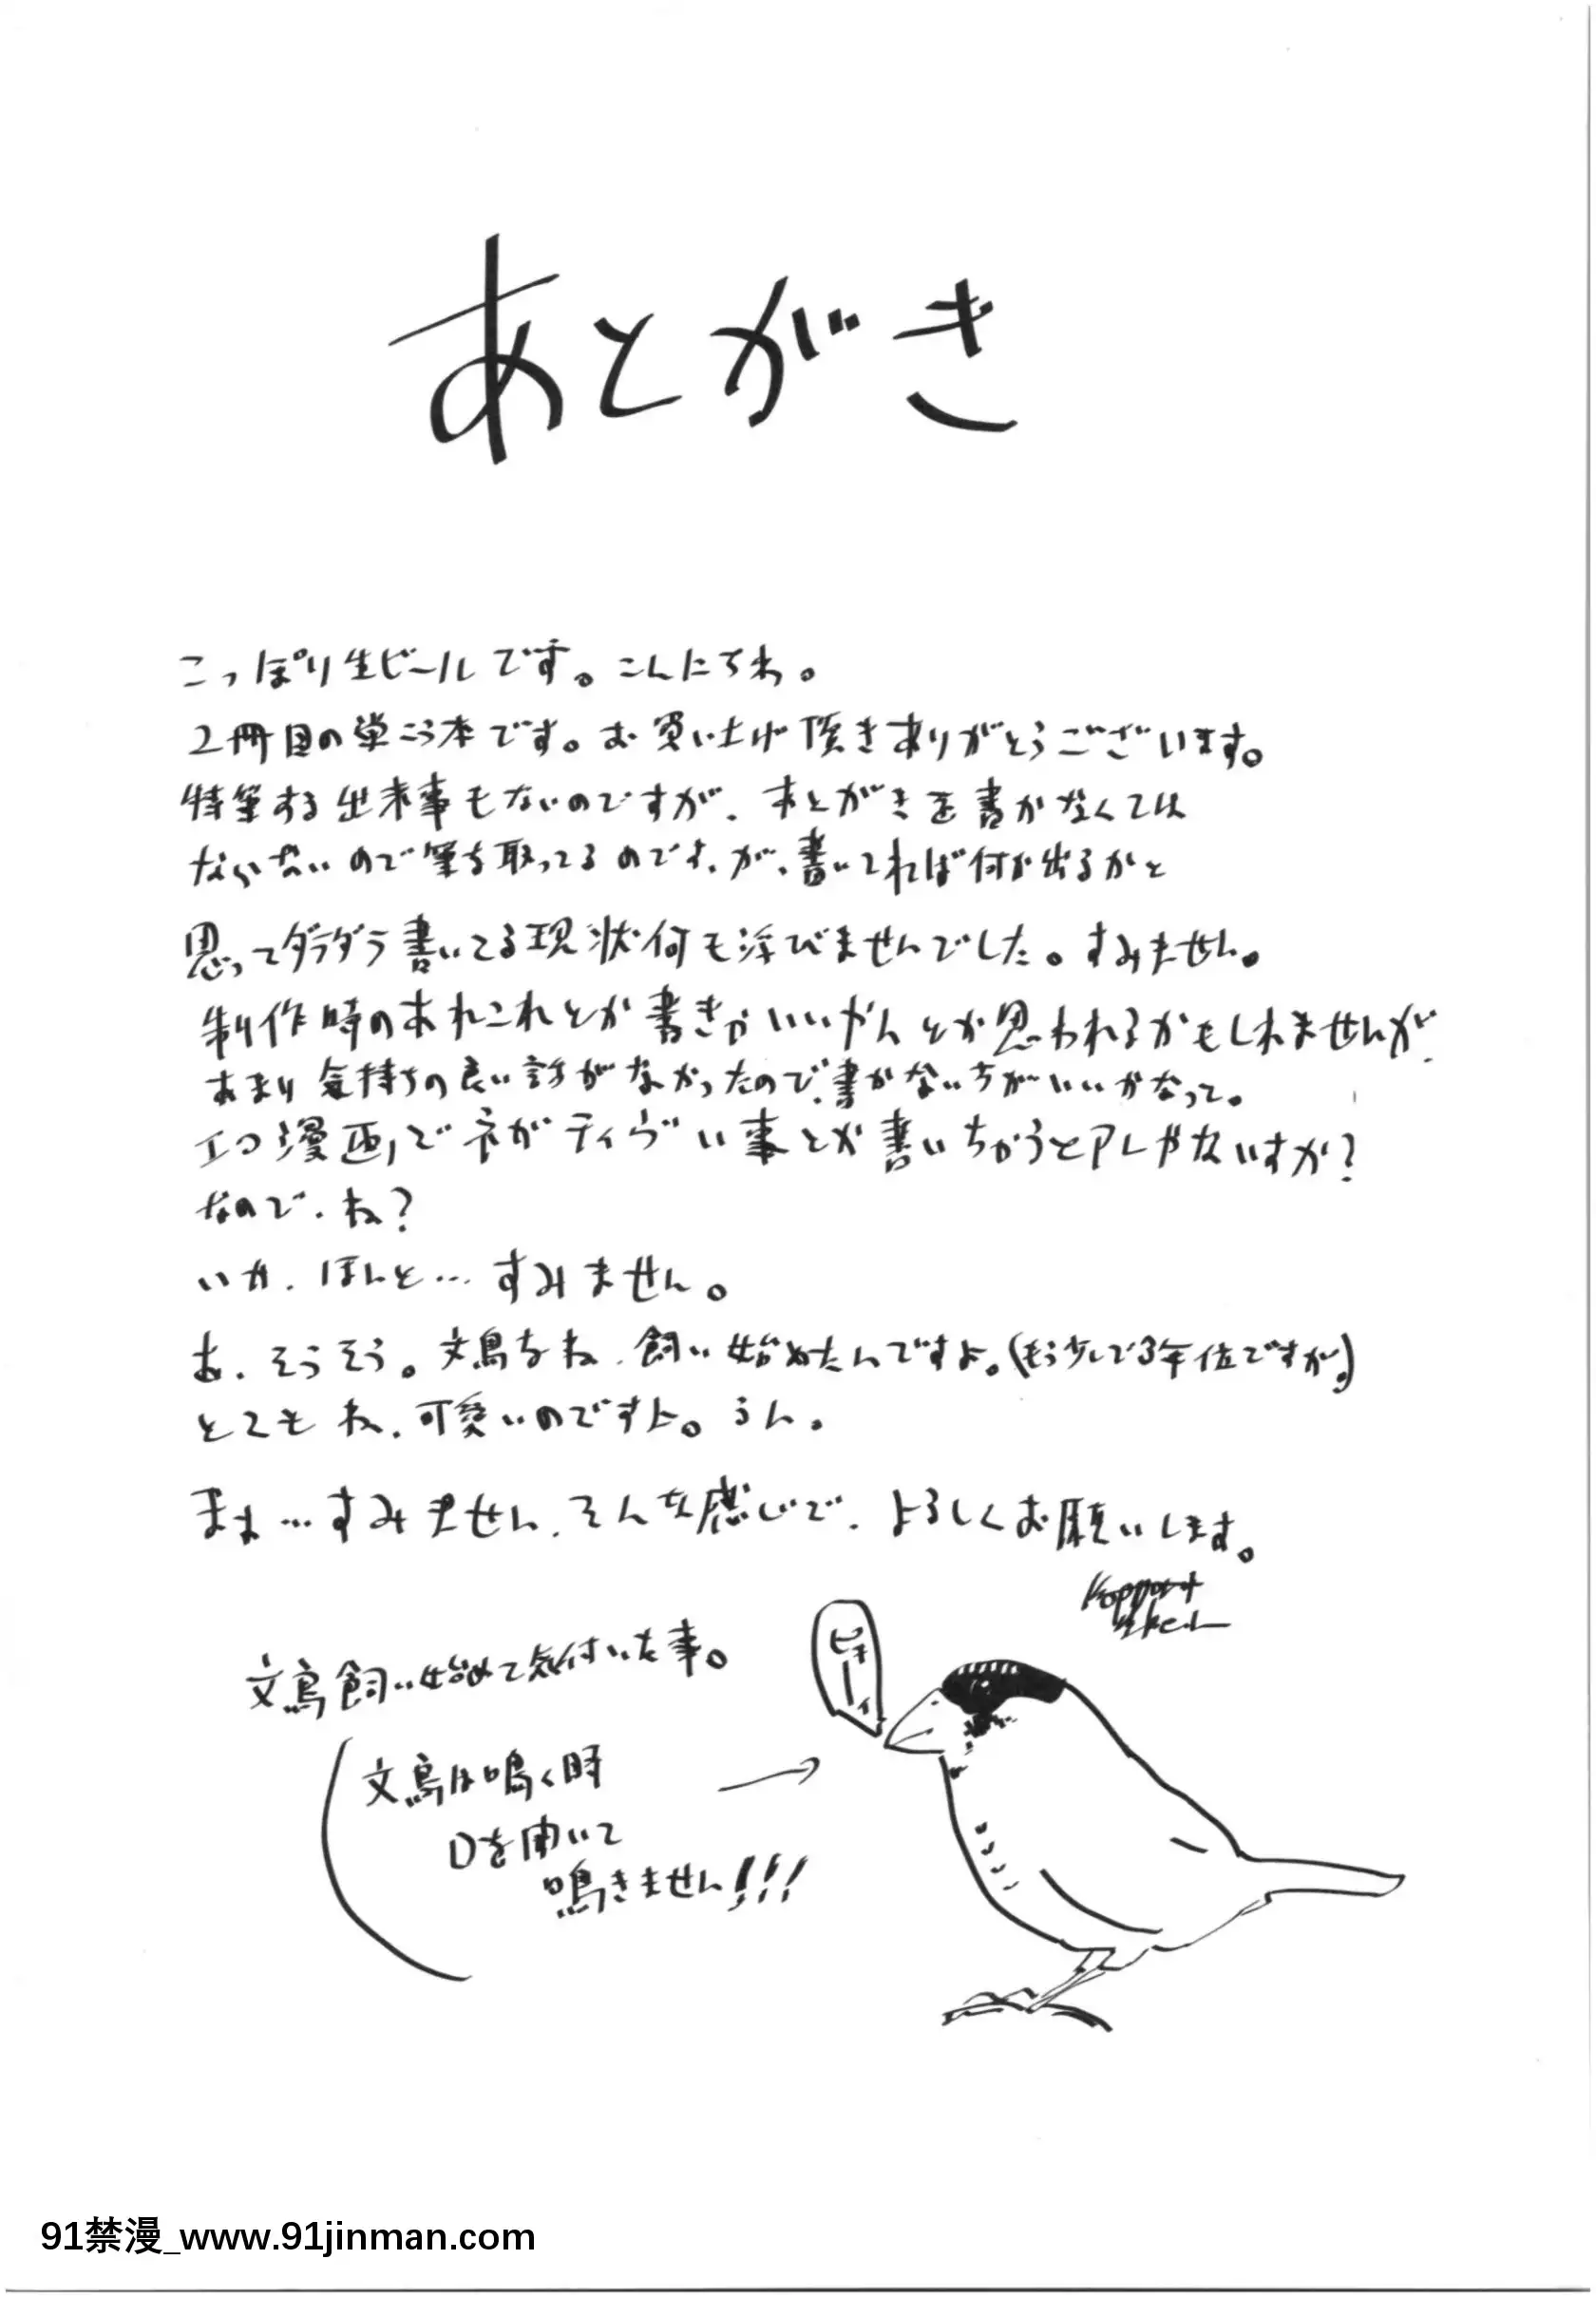 あとがき
こっぽり生ビールです。こんにちわ。
2冊目の単こう本です。お買い上げ頂きありがとうございます。
特筆する出来事もないのですが、あとがきを書かなくては
ならないので筆を取ってるのです、が、書いてれば何か出るかと
思ってダラダラ書いてる現状何も浮びませんでした。すみません。
制作時のあれこれとか書きゃいいやんとか思われるかもしれませんが、
あまり気持ちの良い話がなかったので、書かない方がいいかなって。
エロ漫画でネガティヴい事とか書いちゃうとアレやないすか?
なので、ね?
いや、ほんと…すみません。
あ、そうそう。文鳥をね、飼い始めたんですよ。(もう少しで3年位ですが。)
とてもね、可愛いのですよ。うん。
まぁ…すみません、そんな感じで、よろしくお願いします。
文鳥飼い始めて気付いた事。
ピキーィ
文鳥は鳴く時
口を開いて
鳴きません!!!
91禁漫_www.91jinman.com